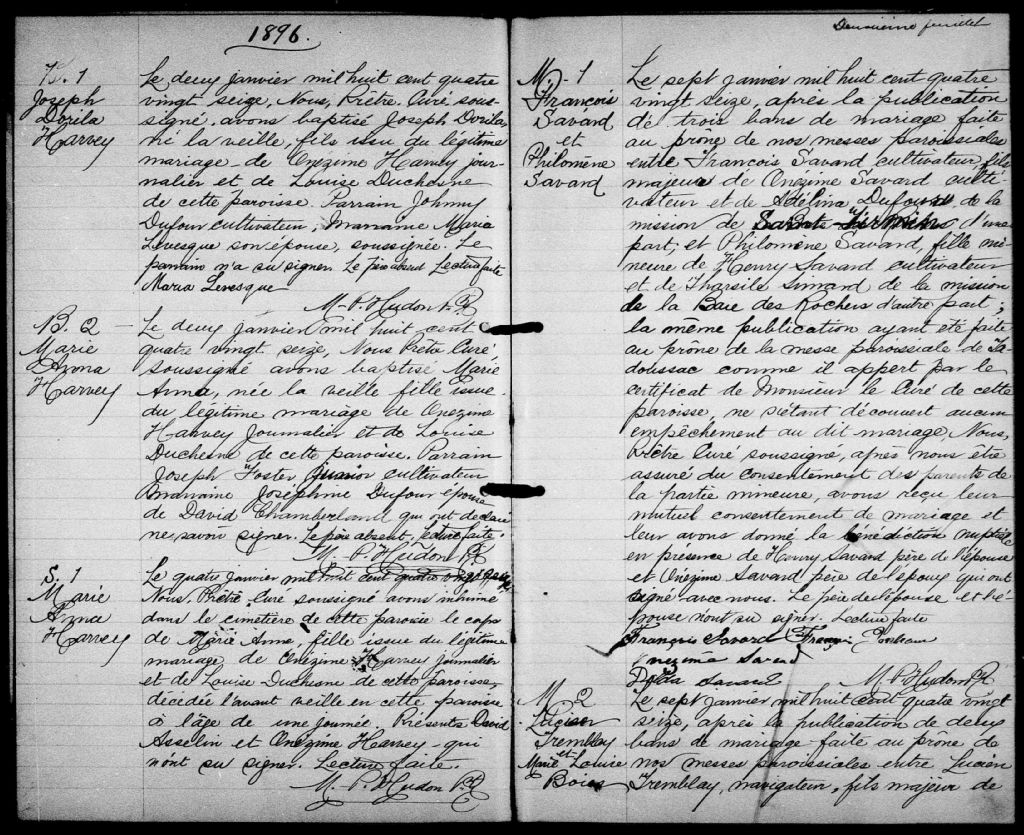 1896.
B. 1
Joseph
Dorila
Harvey
Le deux janvier mil huit cent quatre
vingt seize, Nous, Prêtre, Curé sous-
signé, avons baptisé Joseph Dorila,
né la veille, fils issu du légitime
mariage de Onézime Harvey jour-
nalier et de Louise Duchesne
de cette paroisse. Parrain Johnny
Dufour cultivateur, Marraine Maria
Levesque son épouse, soussignée. Le
parrain n'a su signer. Le père absent. Lecture faite
Maria Levesque
M.-P. Hudon Ptr
B. 2
Marie
Anna
Harvey
Le deux janvier mil huit cent
quatre vingt seize, Nous Prêtre Curé,
soussigné avons baptisé Marie
Anna, née la veille fille issue
du légitime mariage de Onézime
Harvey Journalier et de Louise
Duchesne de cette paroisse. Parrain
Joseph Foster junior cultivateur
marraine Joséphine Dufour épouse
de David Chamberland qui ont déclaré
ne savoir signer. Le père absent, lecture faite.
M.-P. Hudon Ptr
S. 1
Marie
Anna
Harvey
Le quatre janvier mil huit cent quatre vingt seize
Nous, Prêtre, Curé soussigné avons inhumé
dans le cimetière de cette paroisse le corps
de Marie Anna, fille issue du légitime
mariage de Onézime Harvey journalier
et de Louise Duchesne de cette paroisse,
décédée l'avant veille en cette paroisse
à l'âge de une journée. Présents David
Asselin et Onézime Harvey qui
n'ont su signer. Lecture faite.
M.-P. Hudon Ptr
Deuxième feuillet
M. - 1
François
Savard
et
Philomène
Savard
Le sept janvier mil huit cent quatre
vingt seize, après la publication
de trois bans de mariage faite
au prône de nos messes paroissiales
entre François Savard cultivateur, fils
majeur de Onézime Savard culti-
vateur et de Adélina Dufour de la
mission de d'une
part, et Philomène Savard, fille mi-
neure de Henry Savard cultivateur
et de Tharsile Simard de la mission
de la Baie des Rochers d'autre part;
la même publication ayant été faite
au prône de la messe paroissiale de Ta-
doussac comme il appert par le
certificat de Monsieur le Curé de cette
paroisse, ne s'étant découvert aucun
empêchement au dit mariage, Nous,
Prêtre Curé soussigné, après nous être
assuré du consentement des parents de
la partie mineure, avons reçu leur
mutuel consentement de mariage et
leur avons donné la bénédiction nuptiale
en présence de Henry Savard père de l'épouse
et Onézime Savard père de l'époux qui ont
signé avec nous. Le père de l'épouse et l'é-
pouse n'ont su signer. Lecture faite
François Savard
Onézime Savard
Savard
M P Hudon Ptr
M. 2
Lucien
Tremblay
et
Marie Louise
Boies
Le sept janvier mil huit cent quatre vingt
seize, après la publication de deux
bans de mariage faite au prône de
nos messes paroissiales entre Lucien
Tremblay, navigateur, fils majeur de